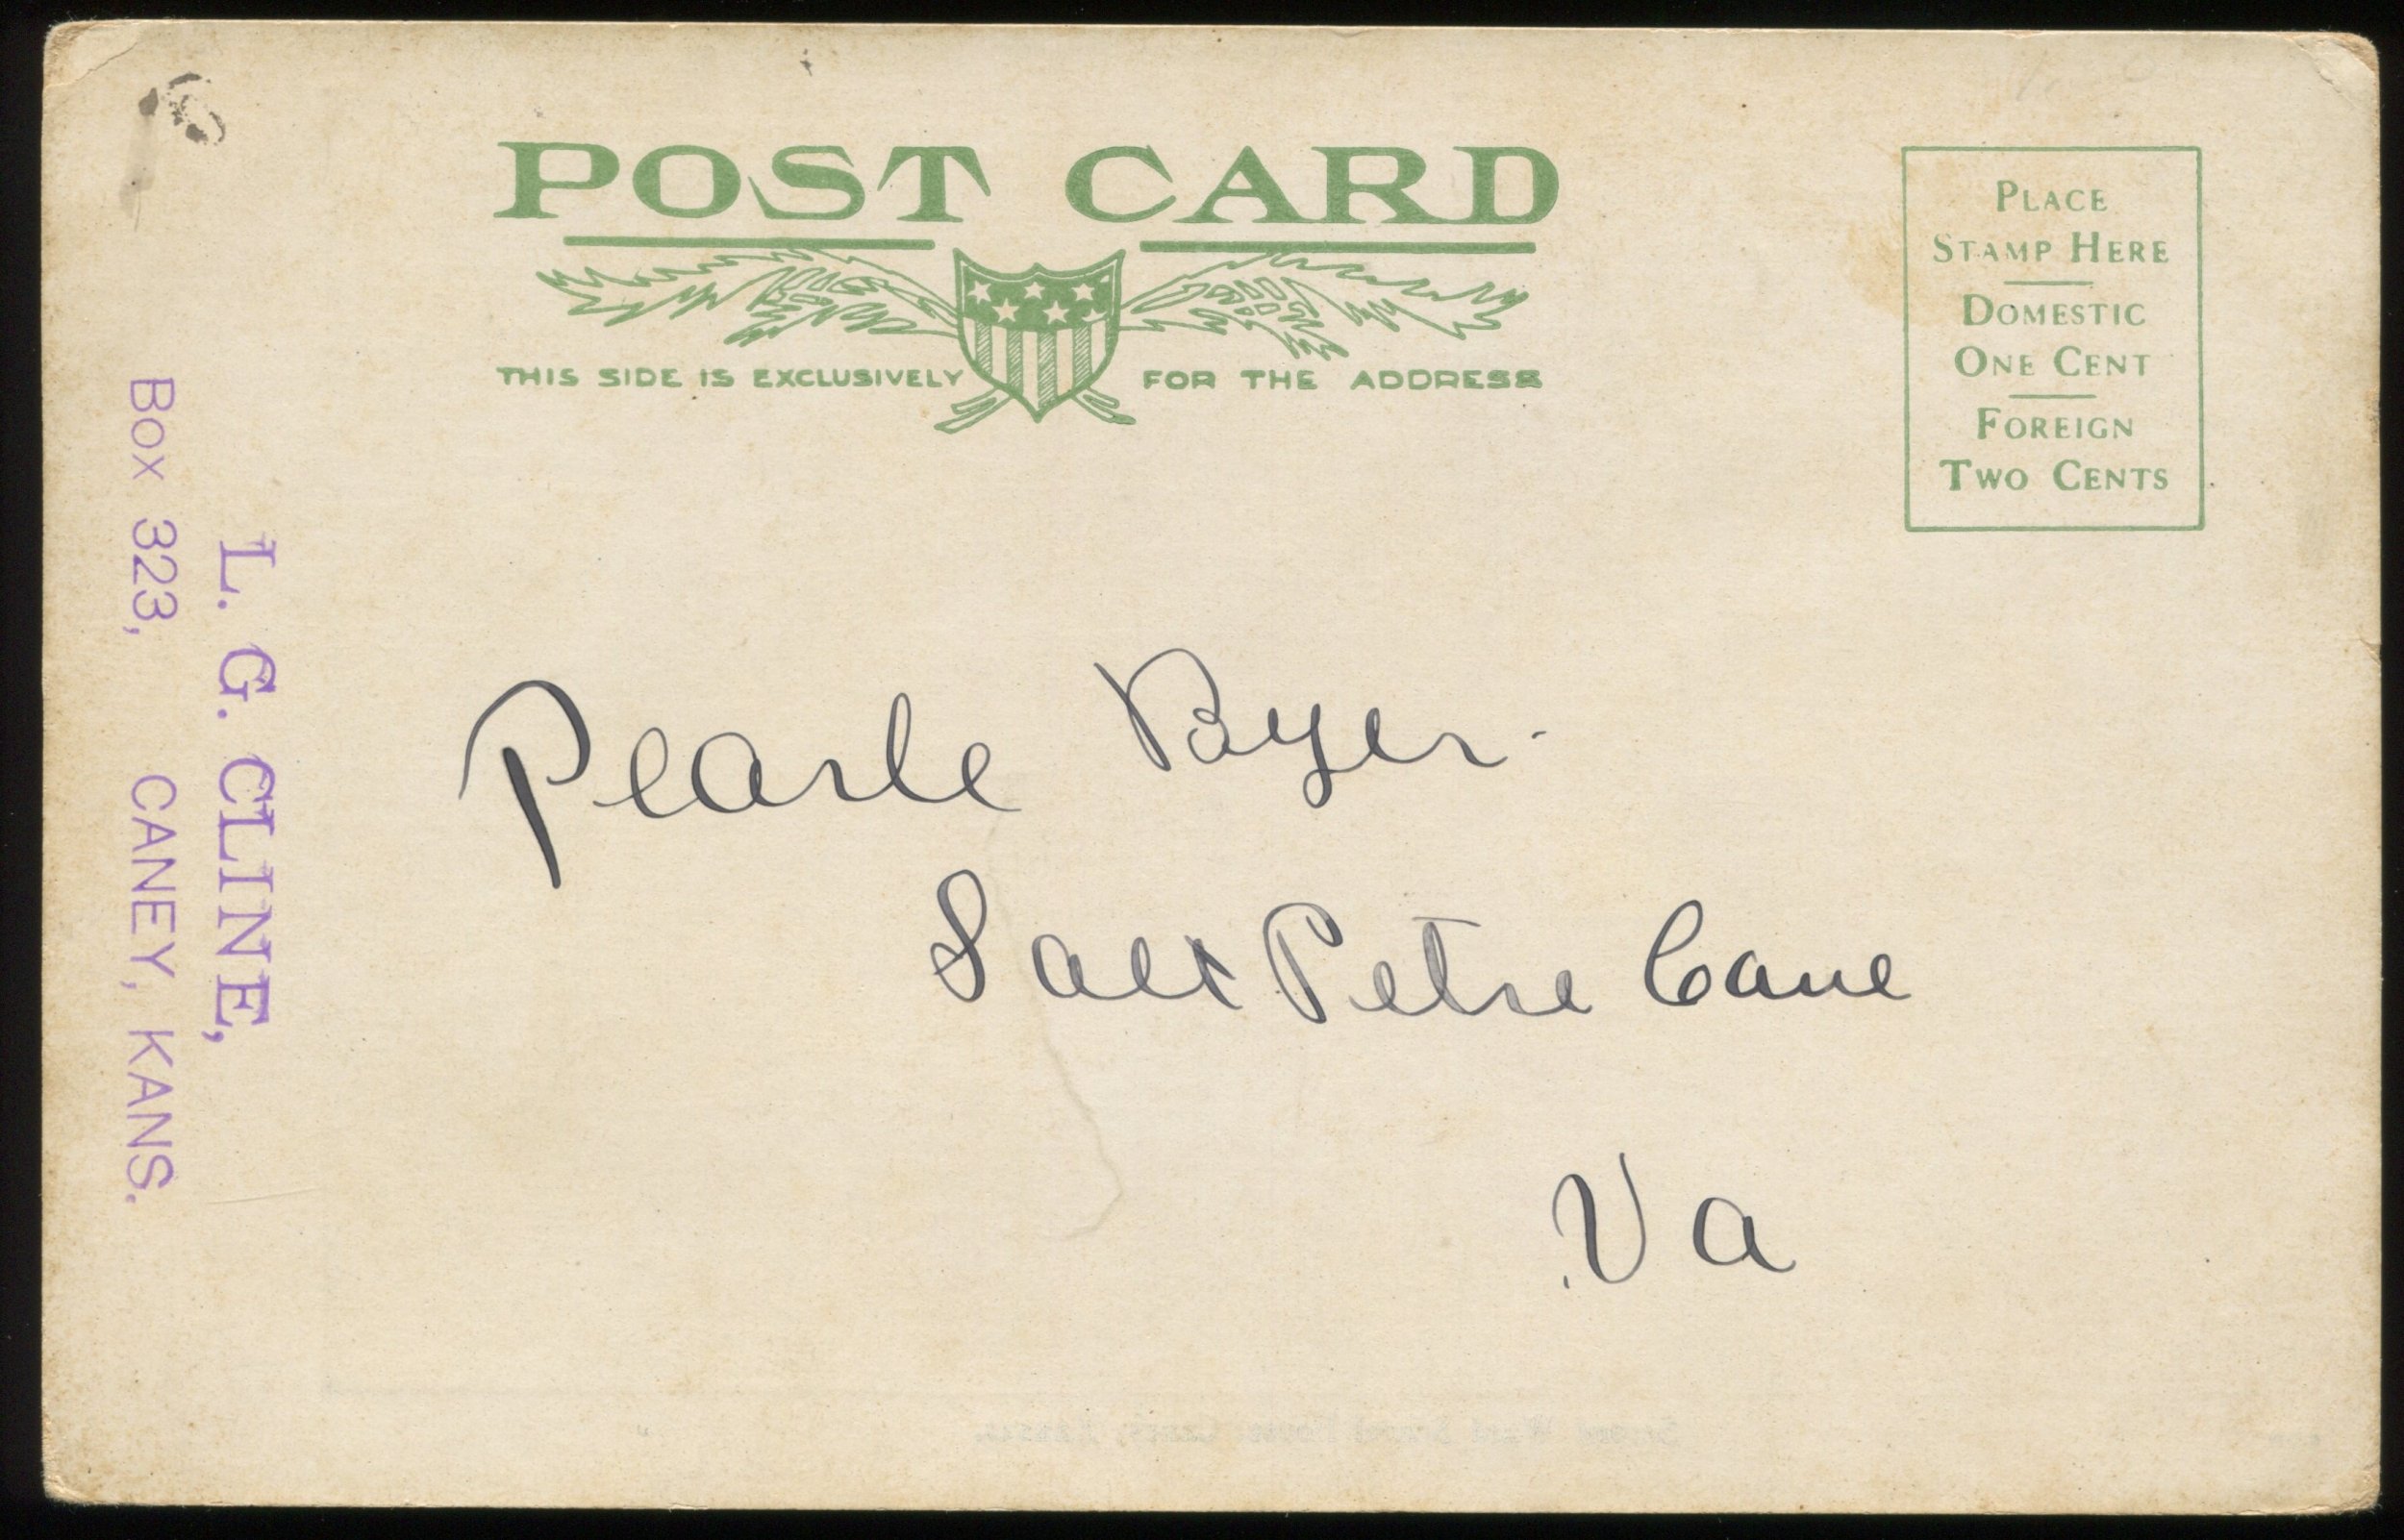 POST CARD
THIS SIDE IS EXCLUSIVELY FOR THE ADDRESS
PLACE
STAMP HERE
DOMESTIC
ONE CENT
FOREIGN
TWO CENTS
L. G. CLINE,
Box 323, CANEY, KANS.
Pearle Byer.
Salt Petre Cave
Va